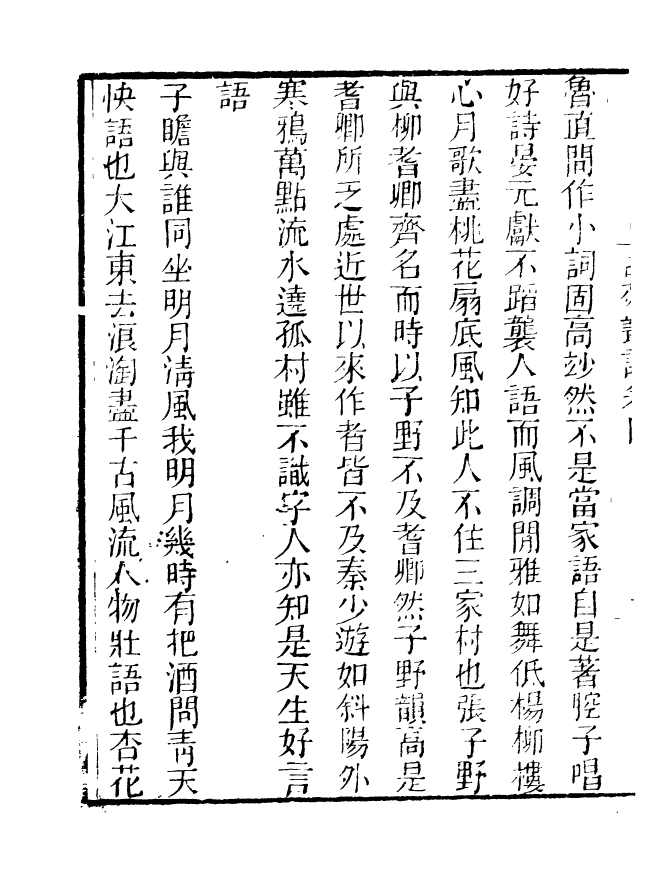 魯直間作小詞固高玅然不是當家語自是著腔子唱
好詩晏元獻不蹈襲人語而風調閒雅如舞低楊柳樓
心月歌盡桃花扇底風知此人不住三家村也張子野
與柳耆卿齊名而時以子野不及耆卿然子野韻高是
耆卿所乏處近世以來作者皆不及秦少遊如斜陽外
寒鴉萬點流水遶孤村雖不識字人亦知是天生好言
語
子瞻與誰同坐明月淸風我明月幾時有把酒問靑天
快語也大江東去浪淘盡千古風流人物壯語也杏花